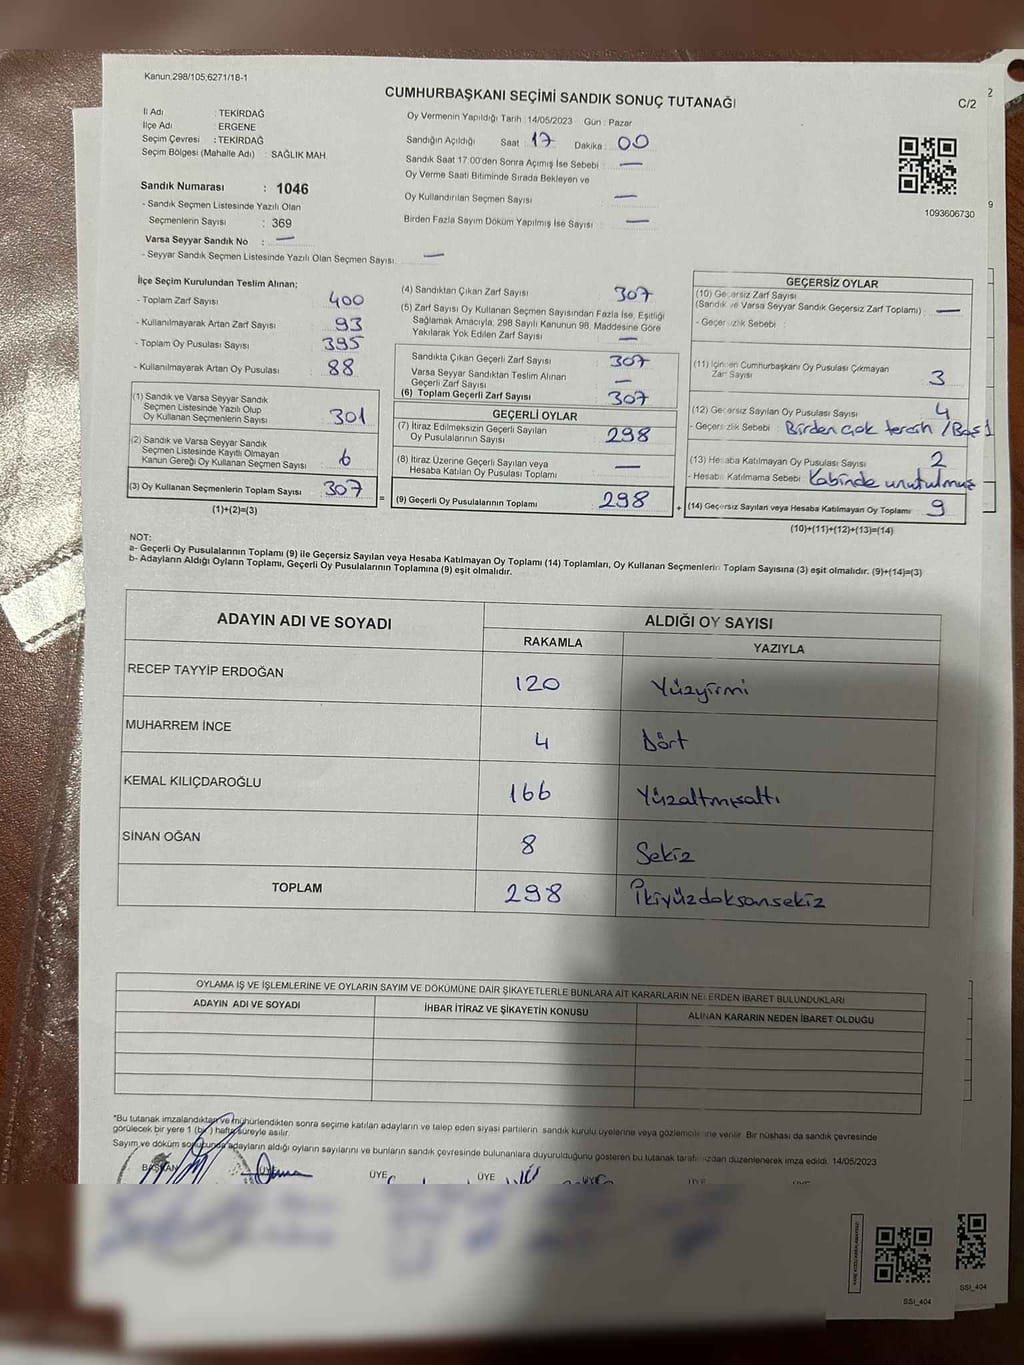 Kanun.298/105,6271/18-1
CUMHURBAŞKANI SEÇİMİ SANDIK SONUÇ TUTANAĞI
C/2
2
İl Adı : TEKİRDAĞ
İlçe Adı : ERGENE
Seçim Çevresi : TEKİRDAĞ
Seçim Bölgesi (Mahalle Adı) : SAĞLIK MAH
Sandık Numarası : 1046
- Sandık Seçmen Listesinde Yazılı Olan
Seçmenlerin Sayısı : 369
Varsa Seyyar Sandık No : —
- Seyyar Sandık Seçmen Listesinde Yazılı Olan Seçmen Sayısı: —
Oy Vermenin Yapıldığı Tarih :14/05/2023 Gün : Pazar
Sandığın Açıldığı Saat : 17 Dakika : 00
Sandık Saat 17:00'den Sonra Açımış İse Sebebi : —
Oy Verme Saati Bitiminde Sırada Bekleyen ve
Oy Kullandırılan Seçmen Sayısı —
Birden Fazla Sayım Döküm Yapılmış İse Sayısı : —
1093606730
9
İlçe Seçim Kurulundan Teslim Alınan;
- Toplam Zarf Sayısı : 400
- Kullanılmayarak Artan Zarf Sayısı : 93
- Toplam Oy Pusulası Sayısı : 395
- Kullanılmayarak Artan Oy Pusulası : 88
(1) Sandık ve Varsa Seyyar Sandık
Seçmen Listesinde Yazılı Olup
Oy Kullanan Seçmenlerin Sayısı : 301
(2) Sandık ve Varsa Seyyar Sandık
Seçmen Listesinde Kayıtlı Olmayan
Kanun Gereği Oy Kullanan Seçmen Sayısı : 6
(3) Oy Kullanan Seçmenlerin Toplam Sayısı : 307
(1)+(2)=(3)
=
(4) Sandıktan Çıkan Zarf Sayısı : 307
(5) Zarf Sayısı Oy Kullanan Seçmen Sayısından Fazla İse, Eşitliği
Sağlamak Amacıyla; 298 Sayılı Kanunun 98. Maddesine Göre
Yakılarak Yok Edilen Zarf Sayısı : —
Sandıkta Çıkan Geçerli Zarf Sayısı : 307
Varsa Seyyar Sandıktan Teslim Alınan
Geçerli Zarf Sayısı : —
(6) Toplam Geçerli Zarf Sayısı : 307
GEÇERLİ OYLAR
(7) İtiraz Edilmeksizin Geçerli Sayılan
Oy Pusulalarının Sayısı : 298
(8) İtiraz Üzerine Geçerli Sayılan veya
Hesaba Katılan Oy Pusulası Toplamı : —
(9) Geçerli Oy Pusulalarının Toplamı : 298
+
GEÇERSİZ OYLAR
(10) Geçersiz Zarf Sayısı
(Sandık ve Varsa Seyyar Sandık Geçersiz Zarf Toplamı) : —
- Geçersizlik Sebebi :
(11) İçinden Cumhurbaşkanı Oy Pusulası Çıkmayan
Zarf Sayısı : 3
(12) Geçersiz Sayılan Oy Pusulası Sayısı : 4
- Geçersizlik Sebebi : Birden çok tercih /Boş 1
(13) Hesaba Katılmayan Oy Pusulası Sayısı : 2
- Hesaba Katılmama Sebebi : Kabinde unutulmuş
(14) Geçersiz Sayılan veya Hesaba Katılmayan Oy Toplamı : 9
(10)+(11)+(12)+(13)=(14)
NOT:
a- Geçerli Oy Pusulalarının Toplamı (9) ile Geçersiz Sayılan veya Hesaba Katılmayan Oy Toplamı (14) Toplamları, Oy Kullanan Seçmenlerin Toplam Sayısına (3) eşit olmalıdır. (9)+(14)=(3)
b- Adayların Aldığı Oyların Toplamı, Geçerli Oy Pusulalarının Toplamına (9) eşit olmalıdır.
ADAYIN ADI VE SOYADI
ALDIĞI OY SAYISI
RAKAMLA YAZIYLA
RECEP TAYYİP ERDOĞAN 120 Yüzyirmi
MUHARREM İNCE 4 Dört
KEMAL KILIÇDAROĞLU 166 Yüzaltmışaltı
SİNAN OĞAN 8 Sekiz
TOPLAM 298 İkiyüzdoksansekiz
OYLAMA İŞ VE İŞLEMLERİNE VE OYLARIN SAYIM VE DÖKÜMÜNE DAİR ŞİKAYETLERLE BUNLARA AİT KARARLARIN NELERDEN İBARET BULUNDUKLARI
ADAYIN ADI VE SOYADI İHBAR İTİRAZ VE ŞİKAYETİN KONUSU ALINAN KARARIN NEDEN İBARET OLDUĞU
*Bu tutanak imzalandıktan ve mühürlendikten sonra seçime katılan adayların ve talep eden siyasi partilerin sandık kurulu üyelerine veya gözlemcilerine verilir. Bir nüshası da sandık çevresinde
görülecek bir yere 1 (bir) hafta süreyle asılır.
Sayım ve döküm sonucunda adayların aldığı oyların sayılarını ve bunların sandık çevresinde bulunanlara duyurulduğunu gösteren bu tutanak tarafımızdan düzenlenerek imza edildi. 14/05/2023
BAŞKAN ÜYE ÜYE ÜYE ÜYE
SSI_404
SSI_404